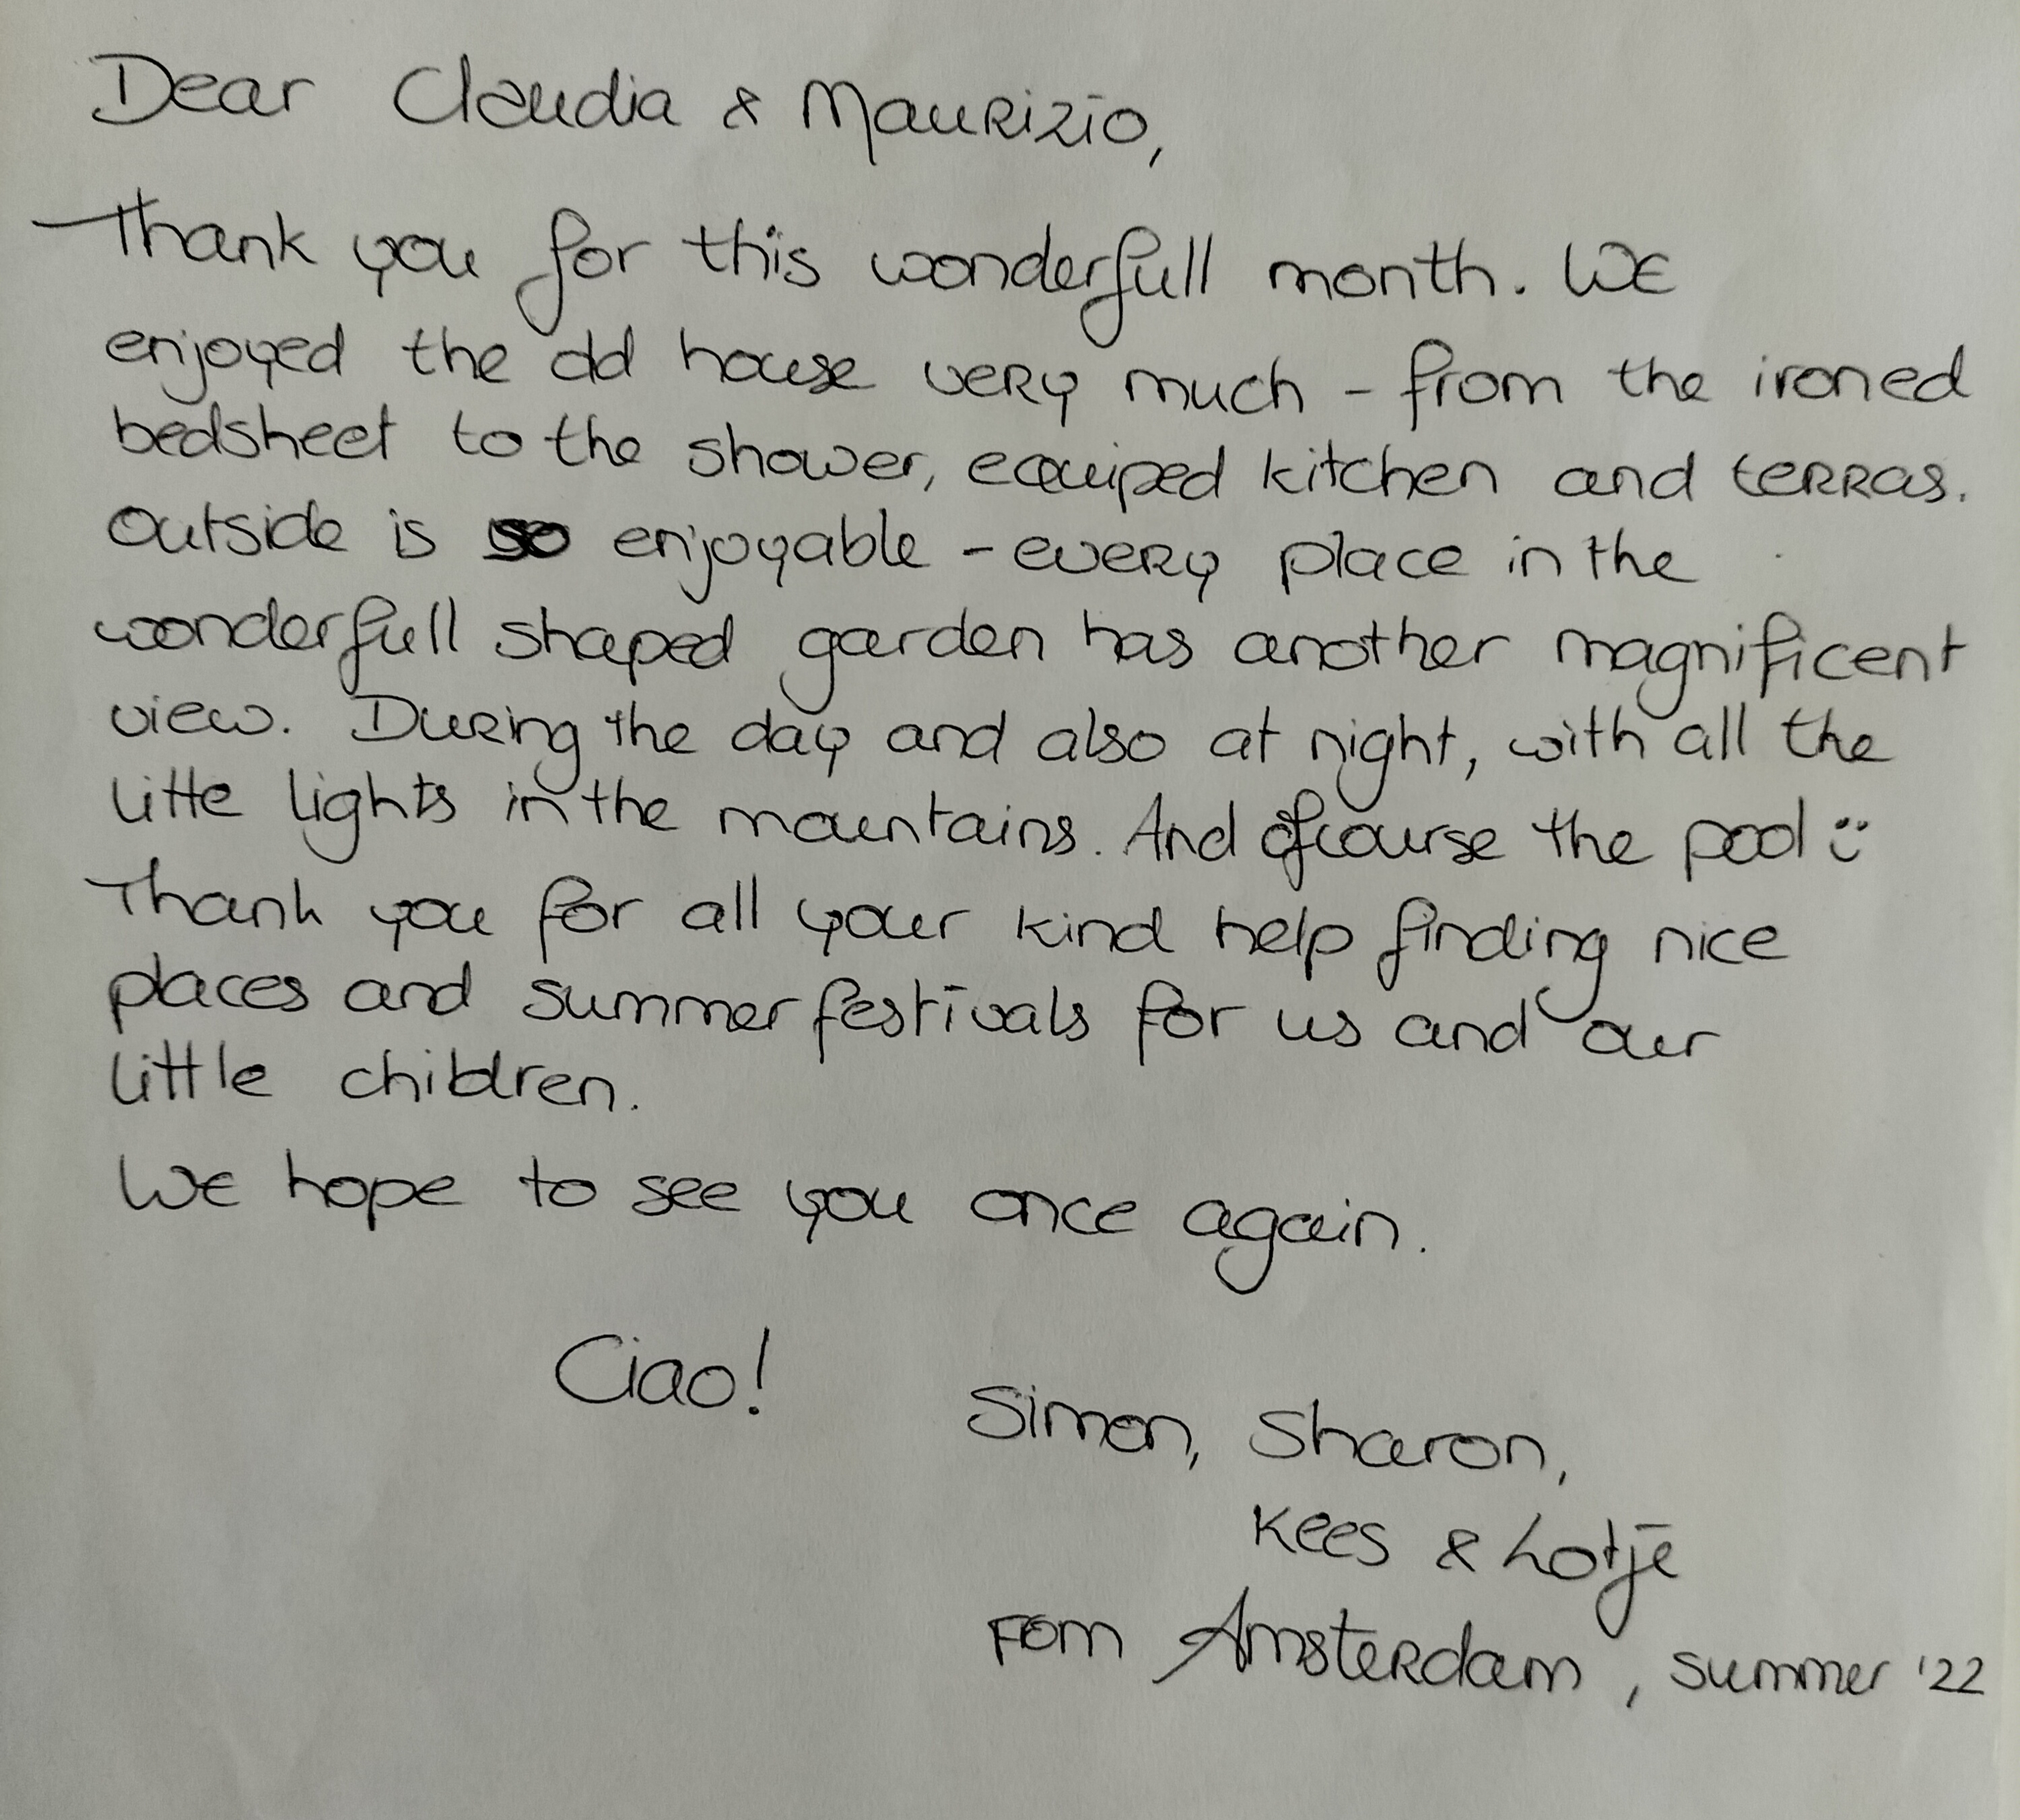 Dear Claudia & Maurizio,
Thank you for this wonderfull month. We
enjoyed the old house very much - from the ironed
bedsheet to the shower, equiped kitchen and terras.
Outside is so enjoyable - every place in the
wonderfull shaped garden has another magnificent
view. During the day and also at night, with all the
litte lights in the mountains. And ofcourse the pool :)
Thank you for all your kind help finding nice
places and summerfestivals for us and our
little children.
We hope to see you once again.
Ciao!
Simon, Sharon,
Kees & Lotje
Fom Amsterdam, summer '22